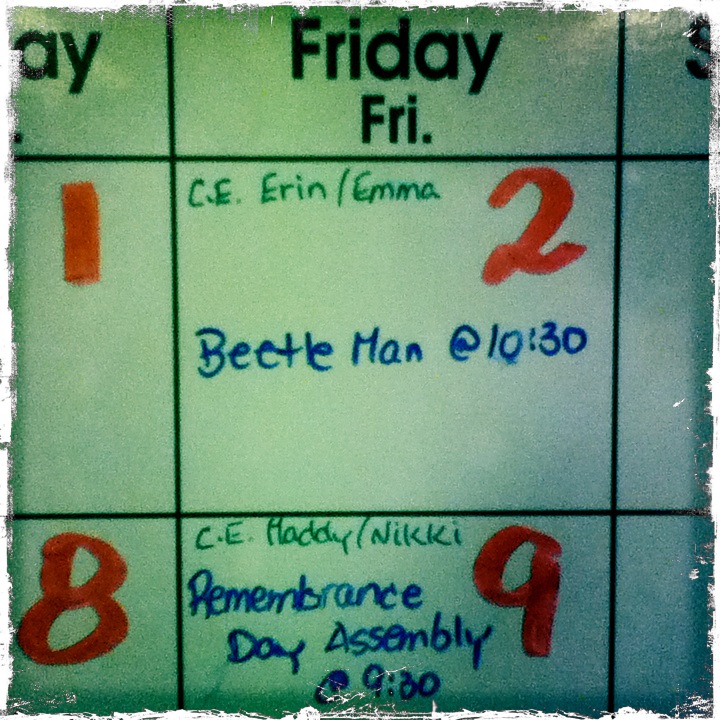 ay
Friday
Fri.
1
C.E. Erin/Emma
2
Beetle Man @10:30
8
C.E. Maddy/Nikki
9
Remembrance
Day Assembly
@ 9:30